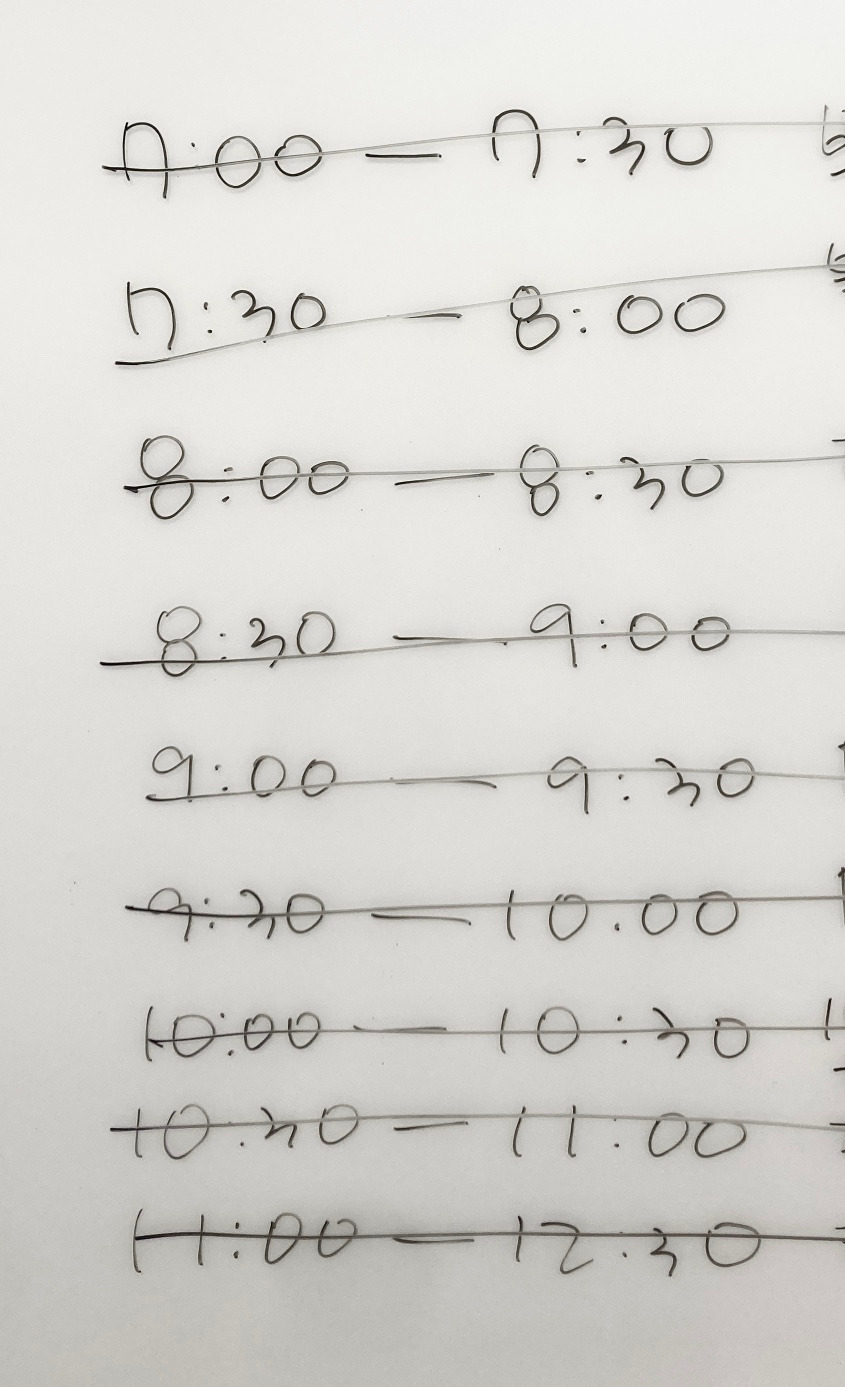 7:00 — 7:30
7:30 — 8:00
8:00 — 8:30
8:30 — 9:00
9:00 — 9:30
9:30 — 10.00
10:00 — 10:30
10.30 — 11:00
11:00 — 12.30